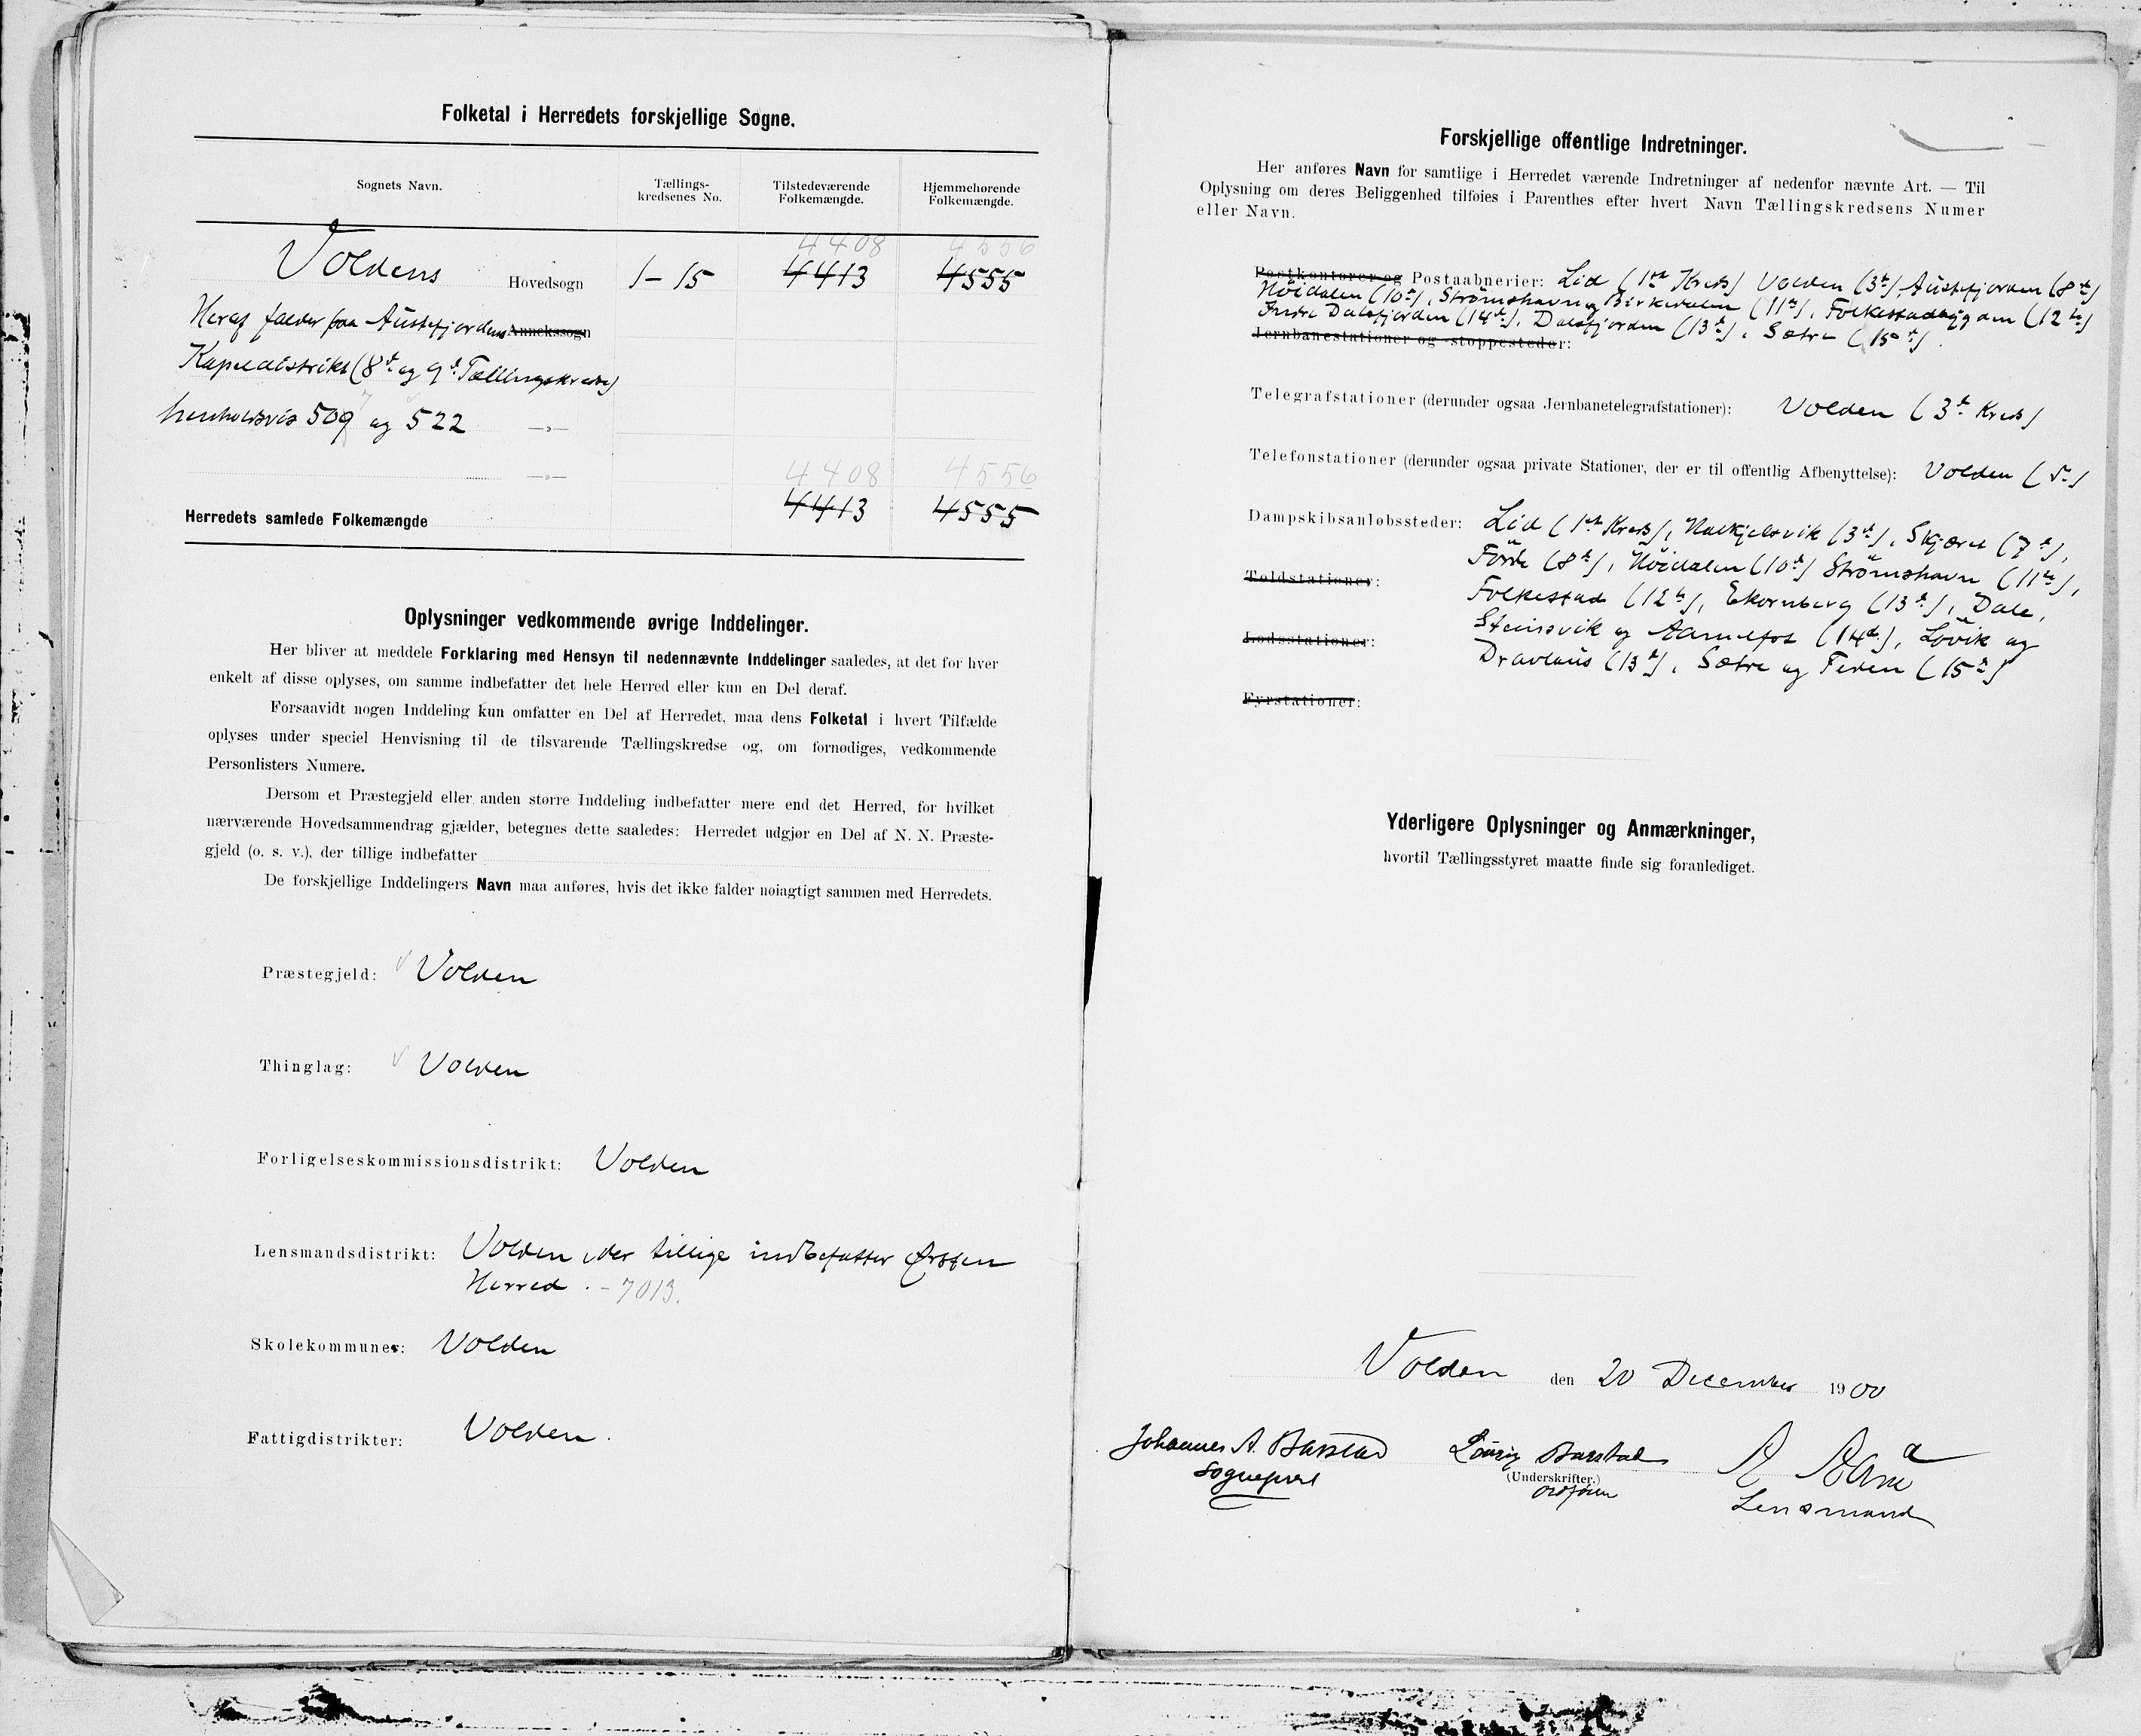 Folketal i Herredets forskjellige Sogne.
Sognets Navn.
Tællings-
kredsenes No.
Tilstedeværende
Folkemængde.
Hjemmehørende
Folkemængde.
4408 4556
Voldens Hovedsogn 1-15 4413 4555
Heraf falder paa Austefjordens Annekssogn
Kapeldistrikt (8de og 9de Tællingskreds)
henholdsvis 509 og 522 —»—
—»— 4408 4556
Herredets samlede Folkemængde 4413 4555
Oplysninger vedkommende øvrige Inddelinger.
Her bliver at meddele Forklaring med Hensyn til nedennævnte Inddelinger saaledes, at det for hver
enkelt af disse oplyses, om samme indbefatter det hele Herred eller kun en Del deraf.
Forsaavidt nogen Inddeling kun omfatter en Del af Herredet, maa dens Folketal i hvert Tilfælde
oplyses under speciel Henvisning til de tilsvarende Tællingskredse og, om fornødiges, vedkommende
Personlisters Numere.
Dersom et Præstegjeld eller anden større Inddeling indbefatter mere end det Herred, for hvilket
nærværende Hovedsammendrag gjælder, betegnes dette saaledes: Herredet udgjør en Del af N. N. Præste-
gjeld (o. s. v.), der tillige indbefatter
De forskjellige Inddelingers Navn maa anføres, hvis det ikke falder nøiagtigt sammen med Herredets.
Præstegjeld: Volden
Thinglag: Volden
Forligelseskommissionsdistrikt: Volden
Lensmandsdistrikt: Volden, der tillige indbefatter Ørsten
Herred. - 7013.
Skolekommuner: Volden
Fattigdistrikter: Volden.
Forskjellige offentlige Indretninger.
Her anføres Navn for samtlige i Herredet værende Indretninger af nedenfor nævnte Art. — Til
Oplysning om deres Beliggenhed tilføies i Parenthes efter hvert Navn Tællingskredsens Numer
eller Navn.
Postkontorer og Postaabnerier: Lid (1ste Kreds) Volden (3de), Austefjorden (8de)
Höidalen (10de), Strömshavn og Birkedalen (11te), Folkestadbygden (12te)
Indre Dalsfjorden (14de), Dalsfjorden (13de), Sætre (15de).
Jernbanestationer og -stoppesteder:
Telegrafstationer (derunder ogsaa Jernbanetelegrafstationer): Volden (3de Kreds)
Telefonstationer (derunder ogsaa private Stationer, der er til offentlig Afbenyttelse): Volden
Dampskibsanløbssteder: Lid (1ste Kreds), Halkjelsvik (3de), Skjæret (7de),
Förde (8de), Höidalen (10de) Strömshavn (11te),
Toldstationer:
Folkestad (12te), Ekornberg (13de), Dale,
Steinsvik og Aamelfot (14de), Lövik og
Lodsstationer:
Dravlaus (13de), Sætre og Feden (15de)
Fyrstationer:
Yderligere Oplysninger og Anmærkninger,
hvortil Tællingsstyret maatte finde sig foranlediget.
Volden den 20 December 1900
Johannes A. Barstad Lauriz Barstad R Aarsæ
(Underskrifter.)
Sogneprest Ordförer Lensmand